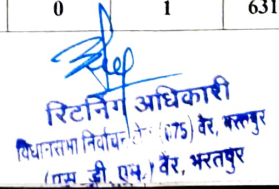 0 1 631
रिटर्निंग अधिकारी
विधानसभा निर्वाचन (75) वैर, भरतपुर
(एस. डी. एम.) वैर, भरतपुर